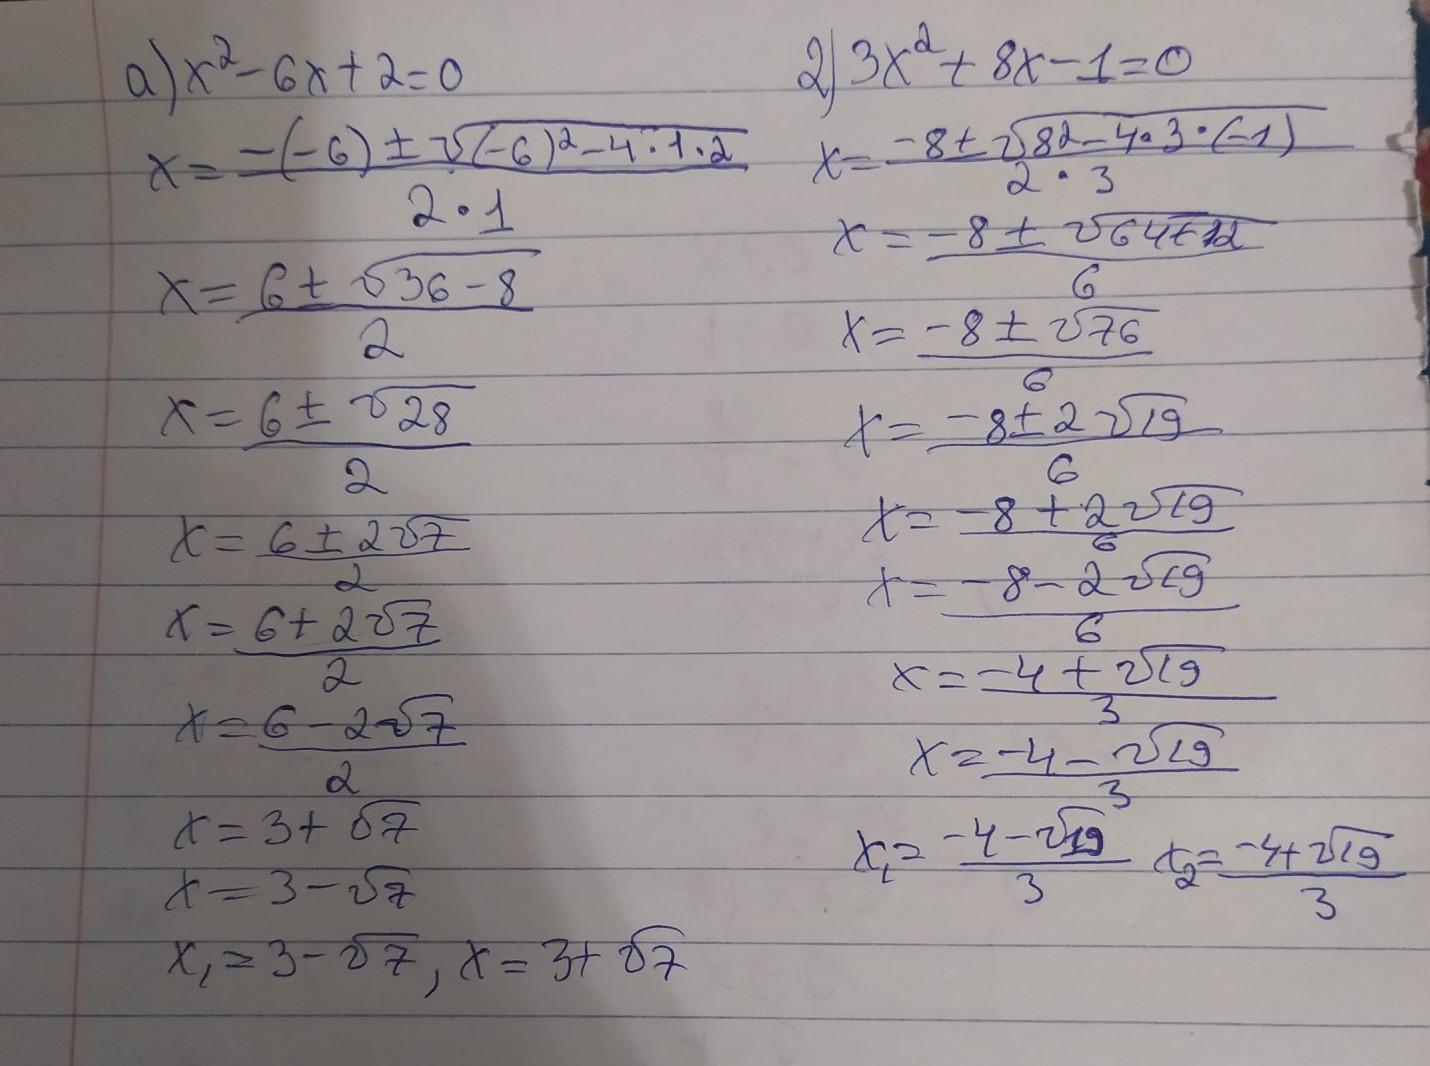 a) x² - 6x + 2 = 0
x = (-(-6) ± √((-6)² - 4 · 1 · 2)) / (2 · 1)
x = (6 ± √(36 - 8)) / 2
x = (6 ± √28) / 2
x = (6 ± 2√7) / 2
x = (6 + 2√7) / 2
x = (6 - 2√7) / 2
x = 3 + √7
x = 3 - √7
x₁ = 3 - √7, x = 3 + √7
2) 3x² + 8x - 1 = 0
x = (-8 ± √(8² - 4 · 3 · (-1))) / (2 · 3)
x = (-8 ± √(64 + 12)) / 6
x = (-8 ± √76) / 6
x = (-8 ± 2√19) / 6
x = (-8 + 2√19) / 6
x = (-8 - 2√19) / 6
x = (-4 + √19) / 3
x = (-4 - √19) / 3
x₁ = (-4 - √19) / 3 x₂ = (-4 + √19) / 3